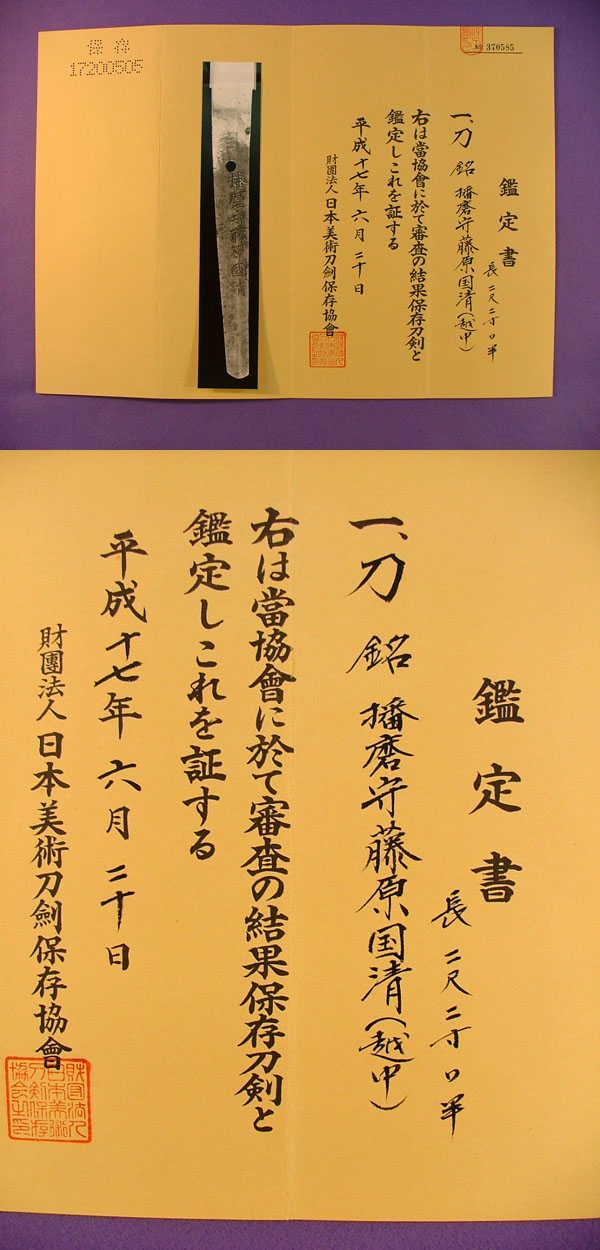 保存
17200505
No 370585
鑑定書
長二尺二寸口半
一、刀 銘 播磨守藤原国清(越中)
右は當協會に於て審査の結果保存刀剣と
鑑定しこれを証する
平成十七年六月二十日
財團法人日本美術刀劍保存協會
播磨守藤原國清
鑑定書
長二尺二寸口半
一、刀 銘 播磨守藤原国清(越中)
右は當協會に於て審査の結果保存刀剣と
鑑定しこれを証する
平成十七年六月二十日
財團法人日本美術刀劍保存協會
財団法人
日本美術
刀剣保存
協会之印